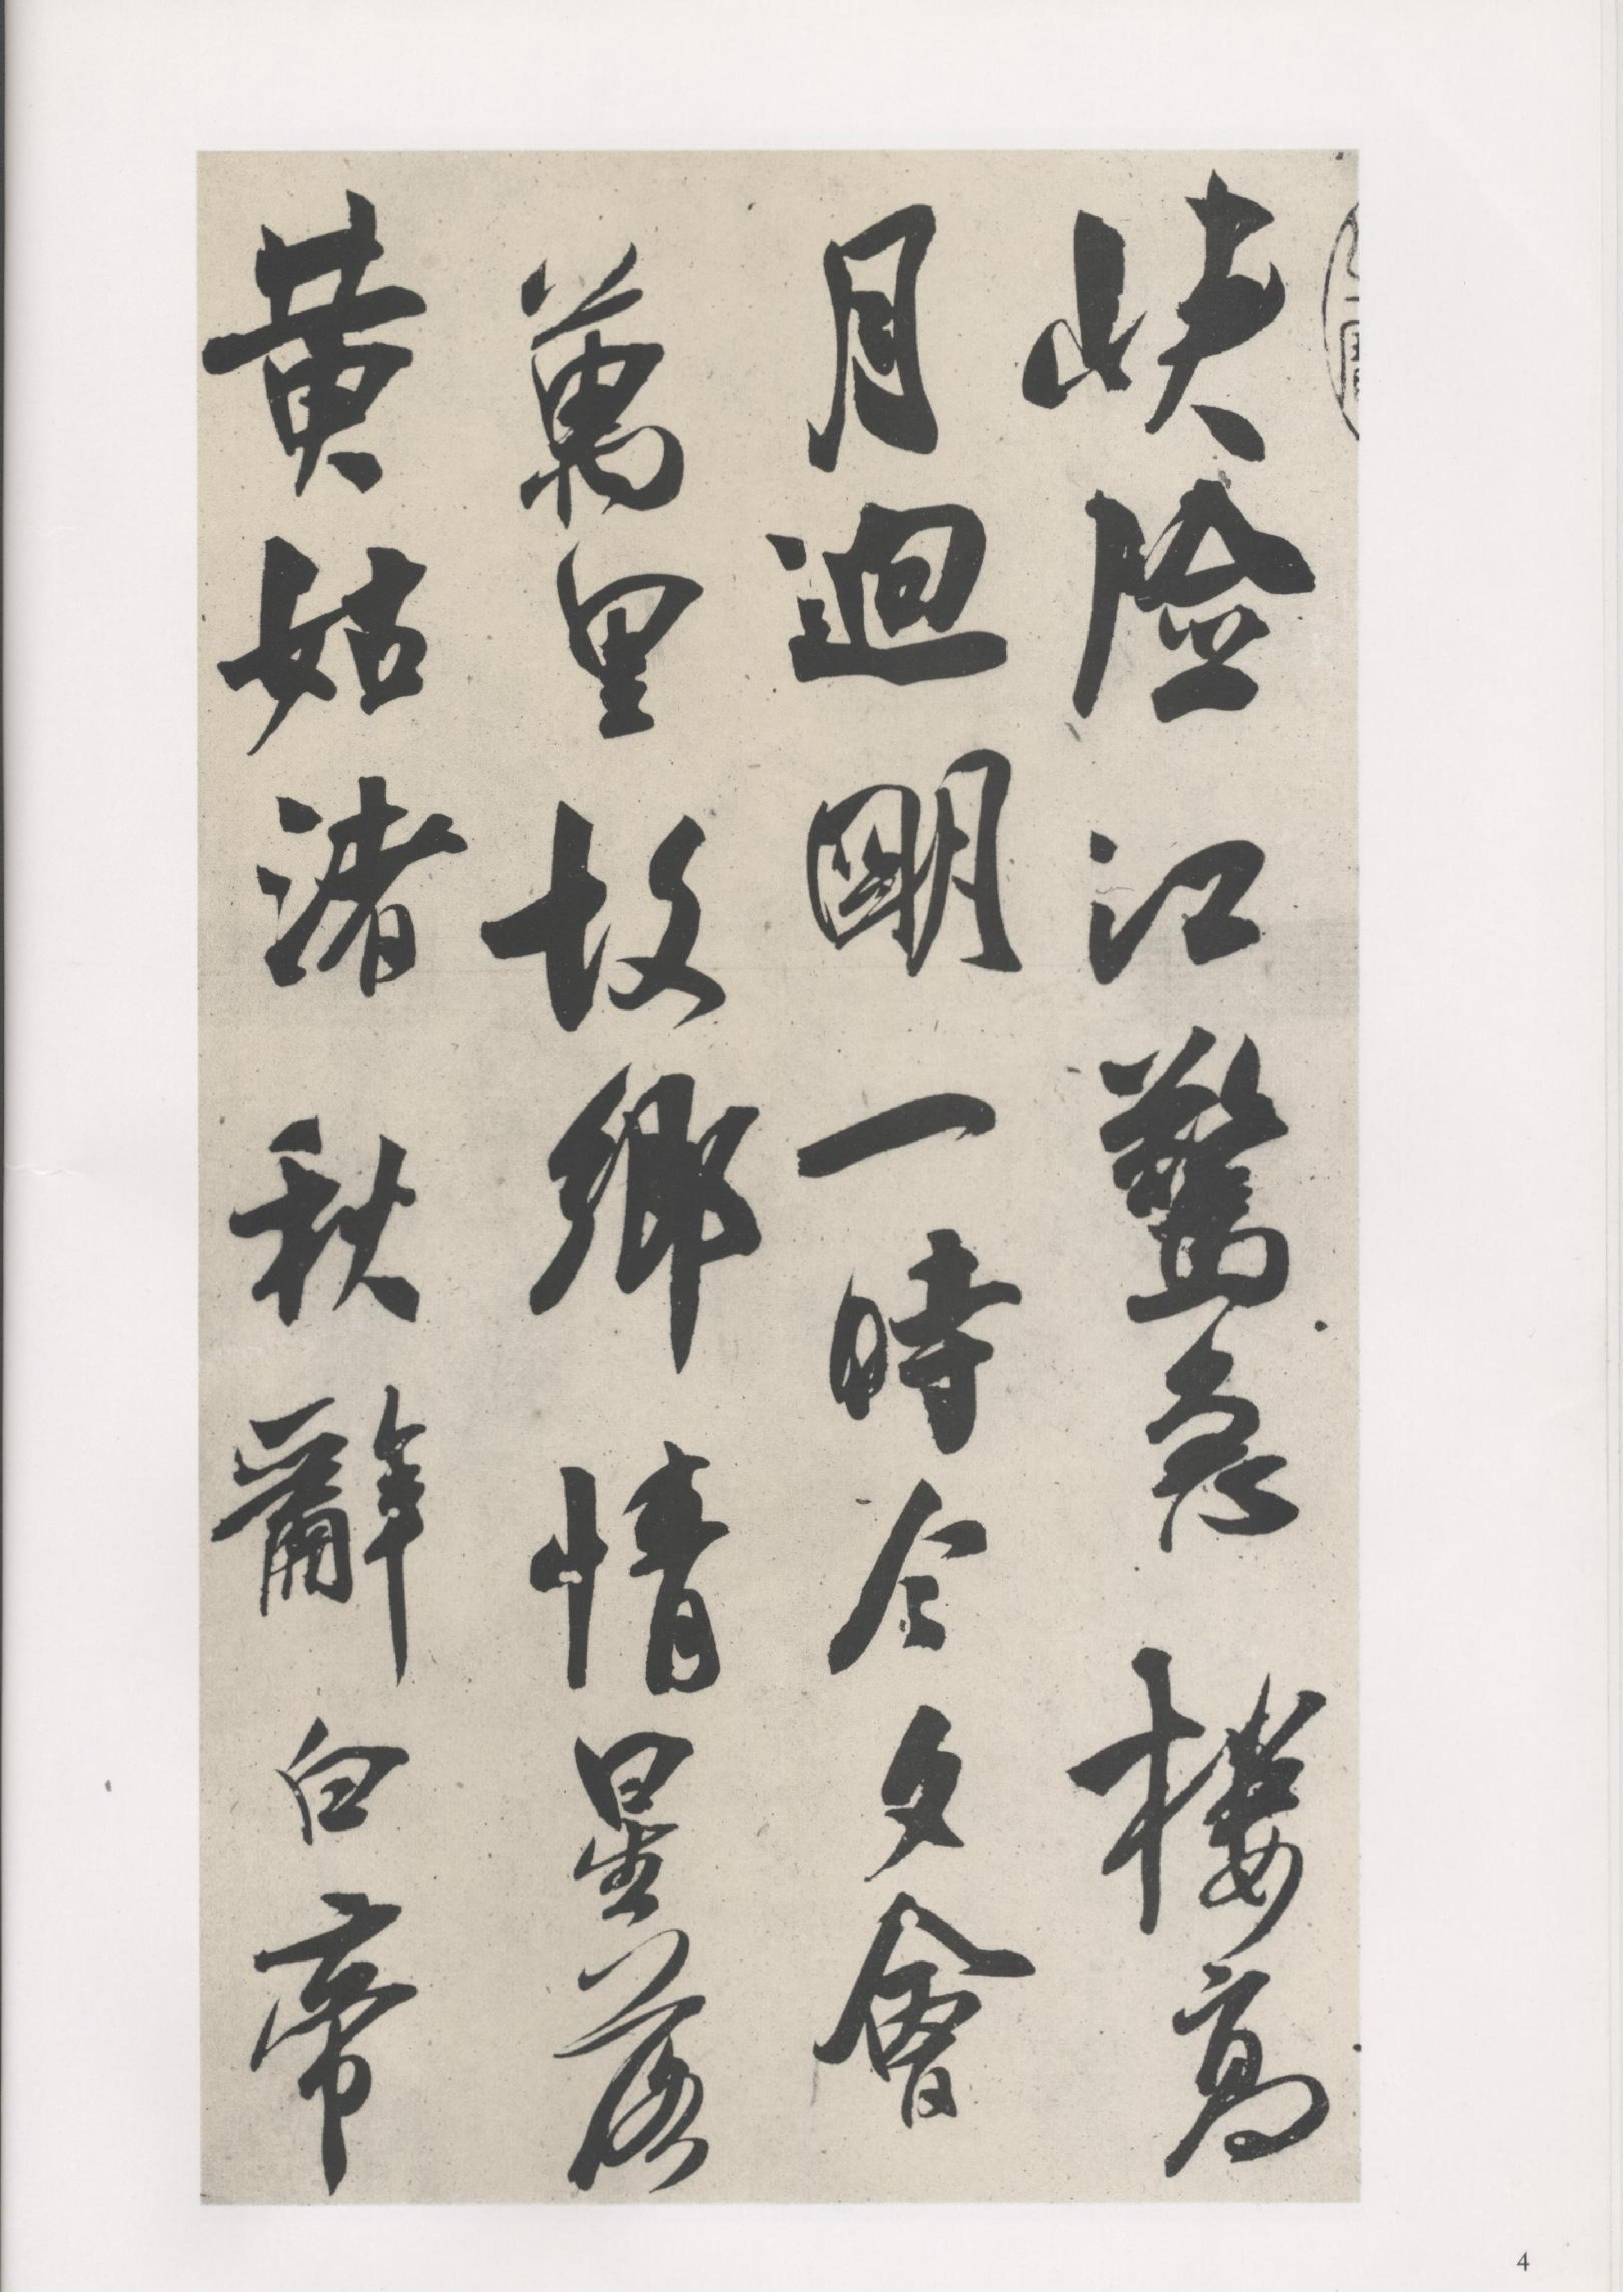 峡險江驚急樓高
月迥明一時今夕會
萬里故鄉情星落
黄姑渚秋辭白帝
4